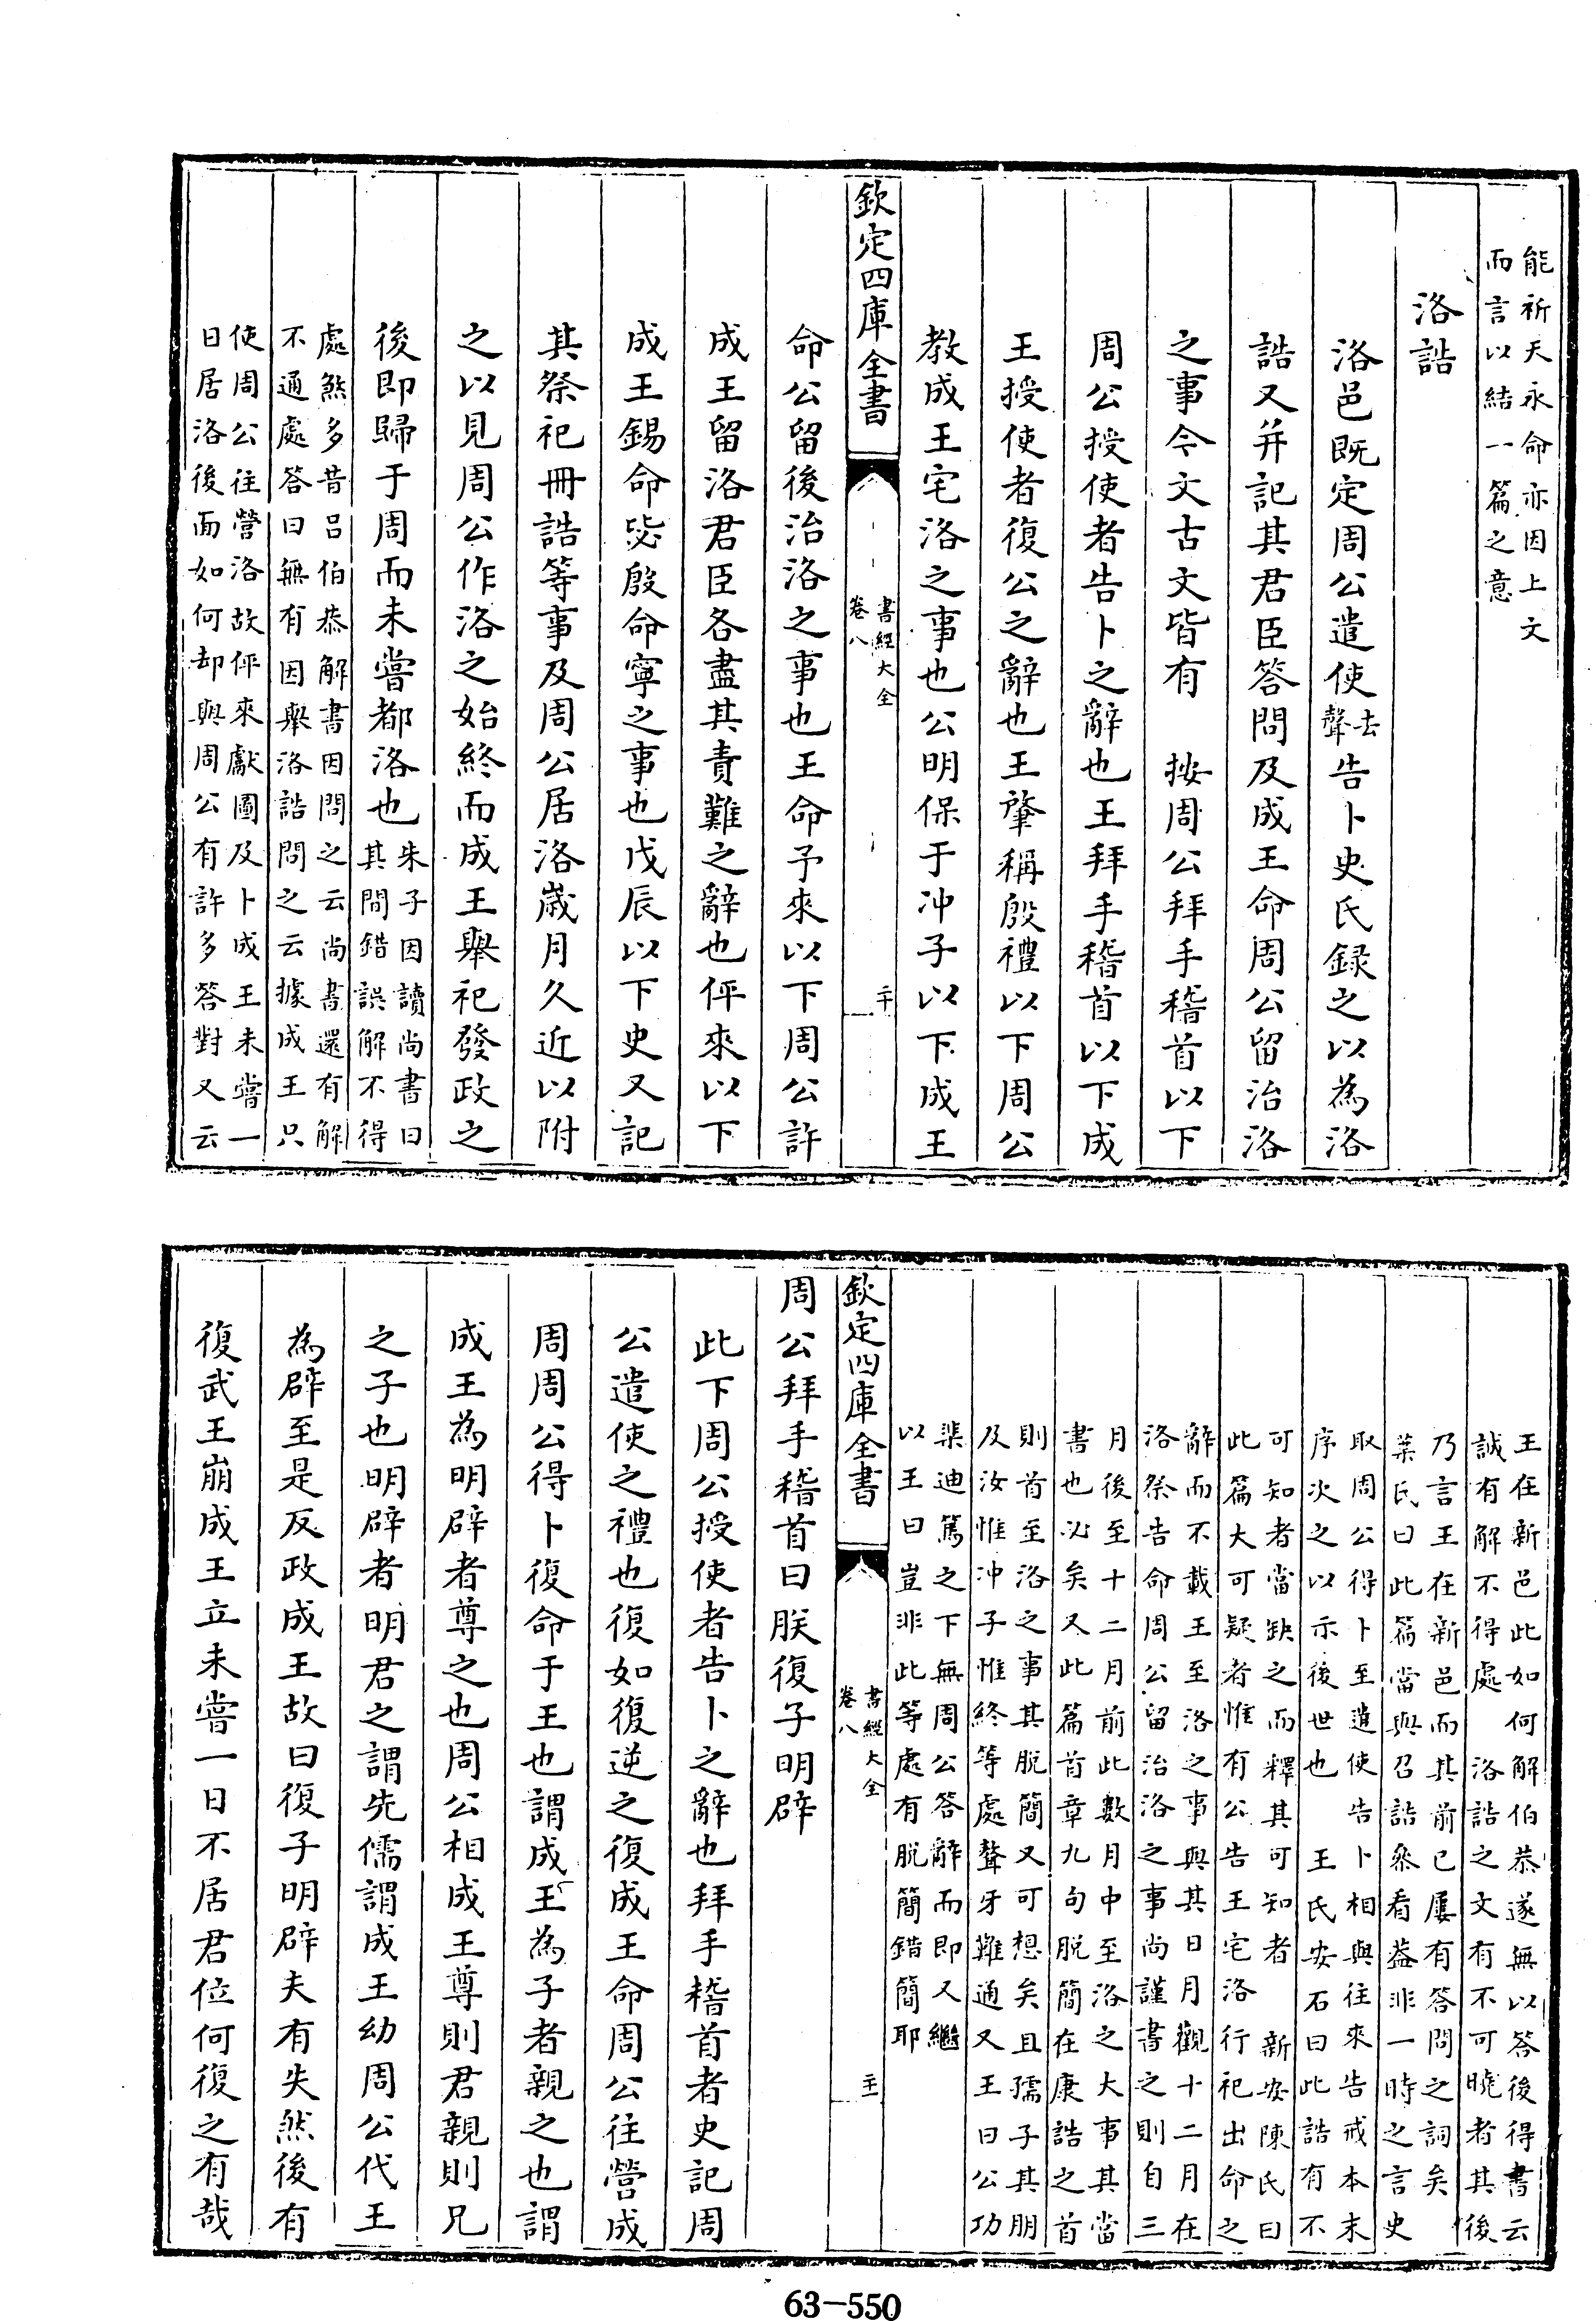 能祈天永命亦因上文
而言以結一篇之意
洛誥
洛邑既定周公遣使去聲告卜史氏録之以為洛
誥又并記其君臣答問及成王命周公留治洛
之事今文古文皆有　按周公拜手稽首以下
周公授使者告卜之辭也王拜手稽首以下成
王授使者復公之辭也王肇稱殷禮以下周公
教成王宅洛之事也公明保于沖子以下成王
欽定四庫全書
書經大全
卷八
二十
命公留後治洛之事也王命予來以下周公許
成王留洛君臣各盡其責難之辭也伻來以下
成王錫命毖殷命寧之事也戊辰以下史又記
其祭祀冊誥等事及周公居洛歲月久近以附
之以見周公作洛之始終而成王舉祀發政之
後即歸于周而未嘗都洛也
朱子因讀尚書曰
其間錯誤解不得
處煞多昔呂伯恭解書因問之云尚書還有解
不通處答曰無有因舉洛誥問之云據成王只
使周公往營洛故伻來獻圖及卜成王未嘗一
日居洛後面如何却與周公有許多答對又云
王在新邑此如何解伯恭遂無以答後得書云
誠有解不得處　洛誥之文有不可曉者其後
乃言王在新邑而其前已屢有答問之詞矣
葉氏曰此篇當與召誥參看蓋非一時之言史
取周公得卜至遣使告卜相與往來告戒本末
序次之以示後世也　王氏安石曰此誥有不
可知者當缺之而釋其可知者　新安陳氏曰
此篇大可疑者惟有公告王宅洛行祀出命之
辭而不載王至洛之事與其日月觀十二月在
洛祭告命周公留治洛之事尚謹書之則自三
月後至十二月前此數月中至洛之大事其當
書也必矣又此篇首章九句脱簡在康誥之首
則首至洛之事其脱簡又可想矣且孺子其朋
及汝惟沖子惟終等處聱牙難通又王曰公功
棐迪篤之下無周公答辭而即又繼
以王曰豈非此等處有脱簡錯簡耶
欽定四庫全書
書經大全
卷八
二十一
周公拜手稽首曰朕復子明辟
此下周公授使者告卜之辭也拜手稽首者史記周
公遣使之禮也復如復逆之復成王命周公往營成
周周公得卜復命于王也謂成王為子者親之也謂
成王為明辟者尊之也周公相成王尊則君親則兄
之子也明辟者明君之謂先儒謂成王幼周公代王
為辟至是反政成王故曰復子明辟夫有失然後有
復武王崩成王立未嘗一日不居君位何復之有哉
63-550